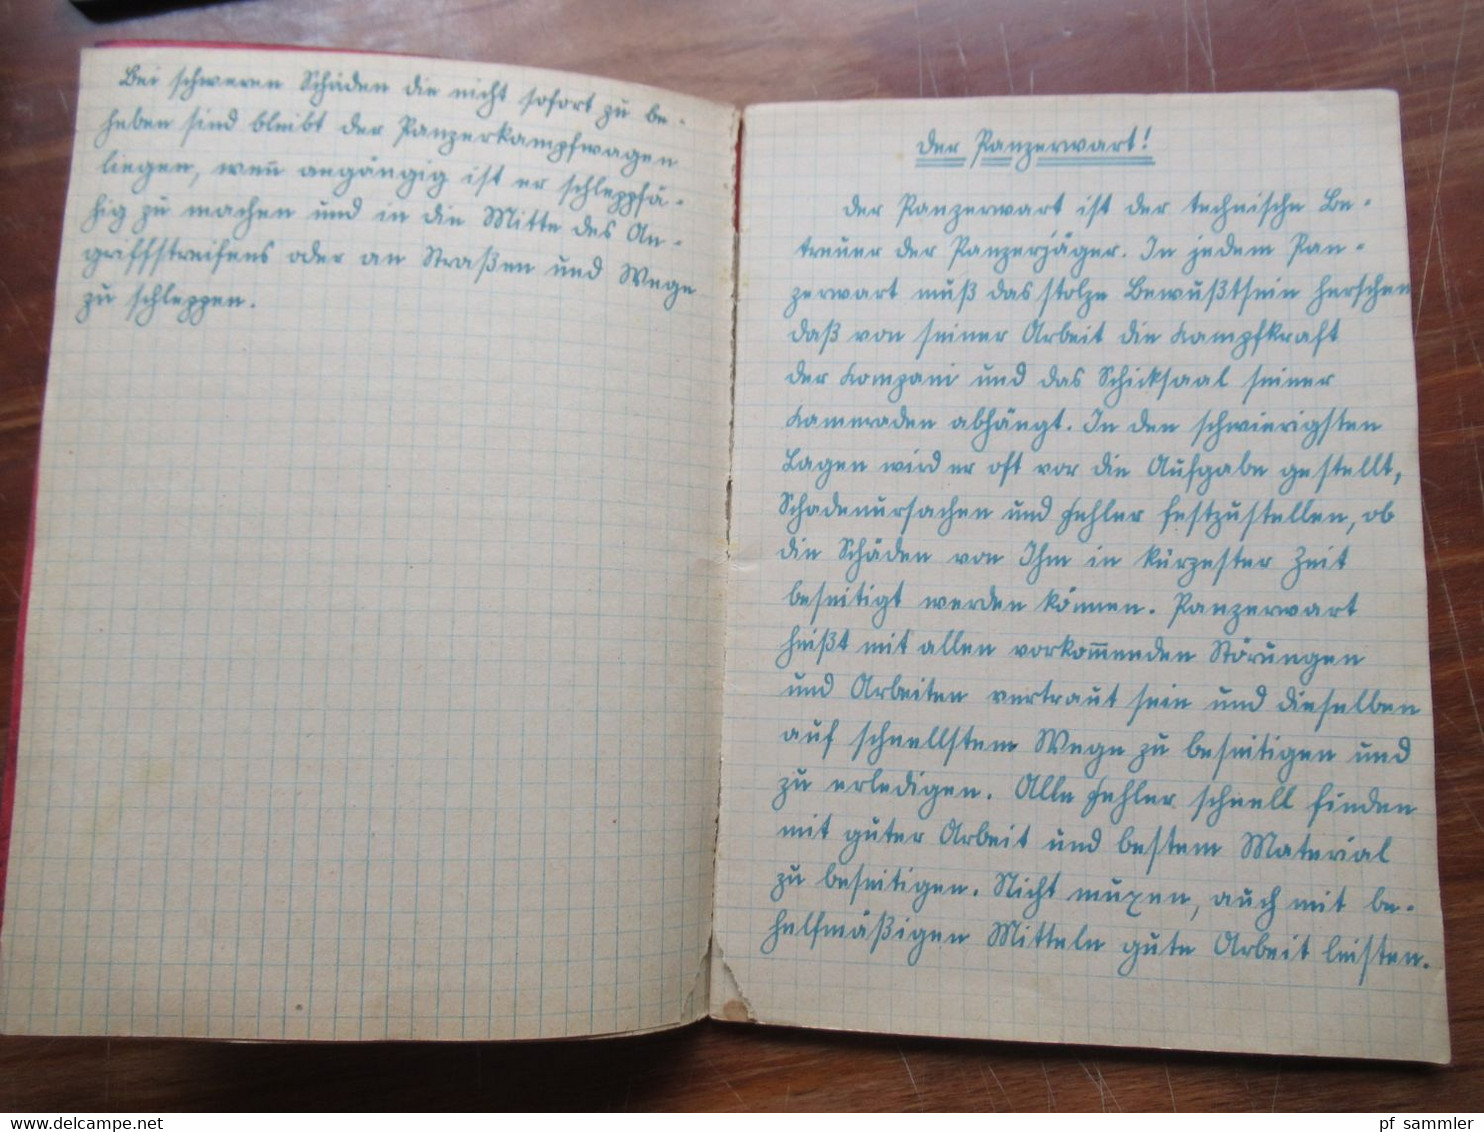 Bei schweren Schäden die nicht sofort zu be-
heben sind bleibt der Panzerkampfwagen
liegen, weñ angängig ist er schleppfä-
hig zu machen und in die Mitte des An-
griffsstreifens oder an Straßen und Wege
zu schleppen.
Der Panzerwart!
Der Panzerwart ist der technische Be-
treuer der Panzerjäger. In jedem Pan-
zerwart muß das stolze Bewußtsein herschen
daß von seiner Arbeit die Kampfkraft
der Kompanie und das Schicksaal seiner
Kameraden abhängt. In den schwierigsten
Lagen wird er oft vor die Aufgabe gestellt,
Schadenursachen und Fehler festzustellen, ob
die Schäden von Ihm in kürzester Zeit
beseitigt werden können. Panzerwart
heißt mit allen vorkom̅enden Störungen
und Arbeiten vertraut sein und dieselben
auf schnellstem Wege zu beseitigen und
zu erledigen. Alle Fehler schnell finden
mit guter Arbeit und bestem Material
zu beseitigen. Nicht murxen, auch mit be-
helfmäßigen Mitteln gute Arbeit leisten.
delcampe.net
pf_sammler